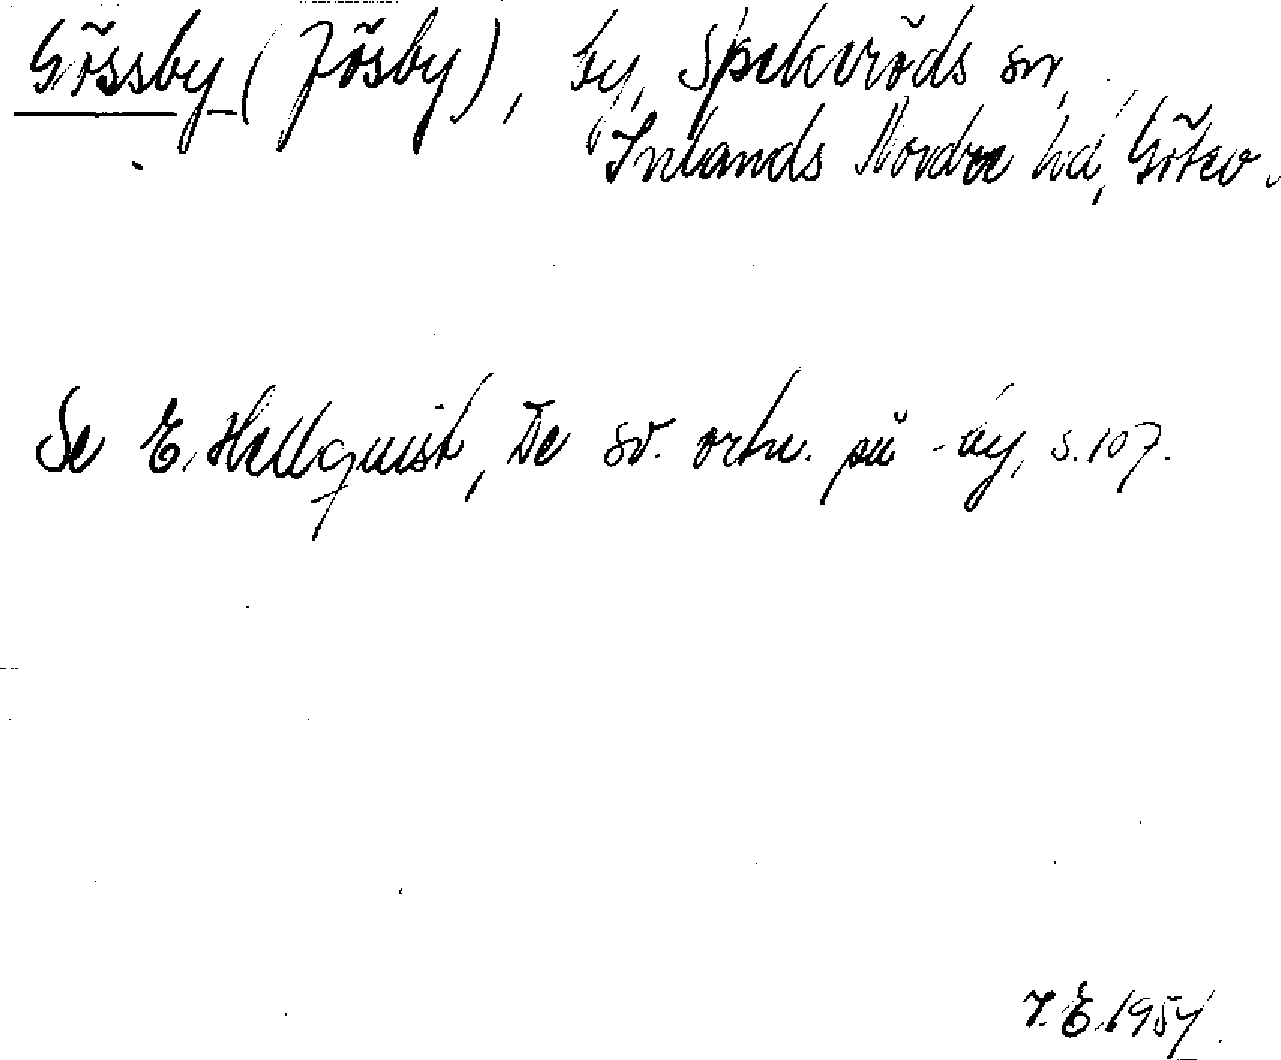 Gössby (Jösby), by, Spekeröds sn,
Inlands Nordre hd, Götev.
Se E. Hellquist, De sv. ortn. på -by, s. 107.
V.E. 1954.